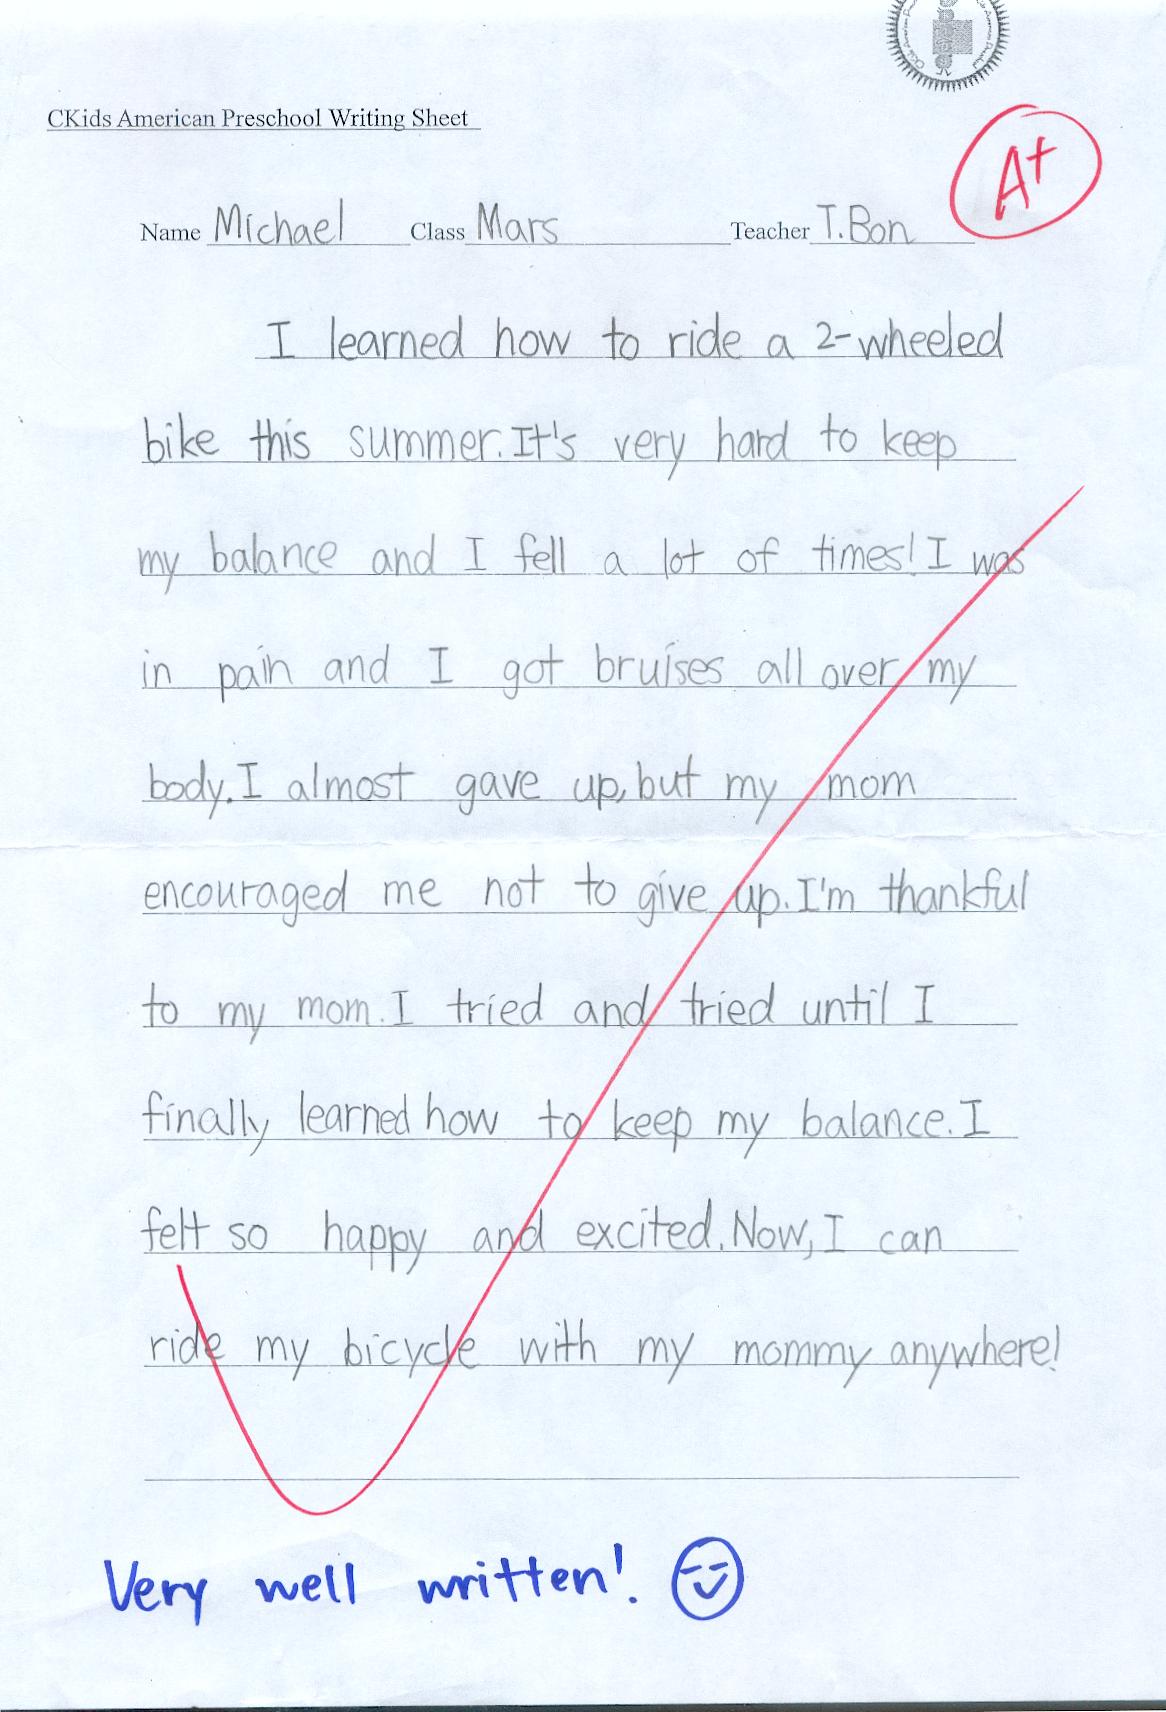 CKids American Preschool Writing Sheet
A+
Name Michael Class Mars Teacher T.Bon
I learned how to ride a 2-wheeled
bike this summer. It's very hard to keep
my balance and I fell a lot of times! I was
in pain and I got bruises all over my
body. I almost gave up, but my mom
encouraged me not to give up. I'm thankful
to my mom. I tried and tried until I
finally learned how to keep my balance. I
felt so happy and excited. Now, I can
ride my bicycle with my mommy anywhere!
Very well written!